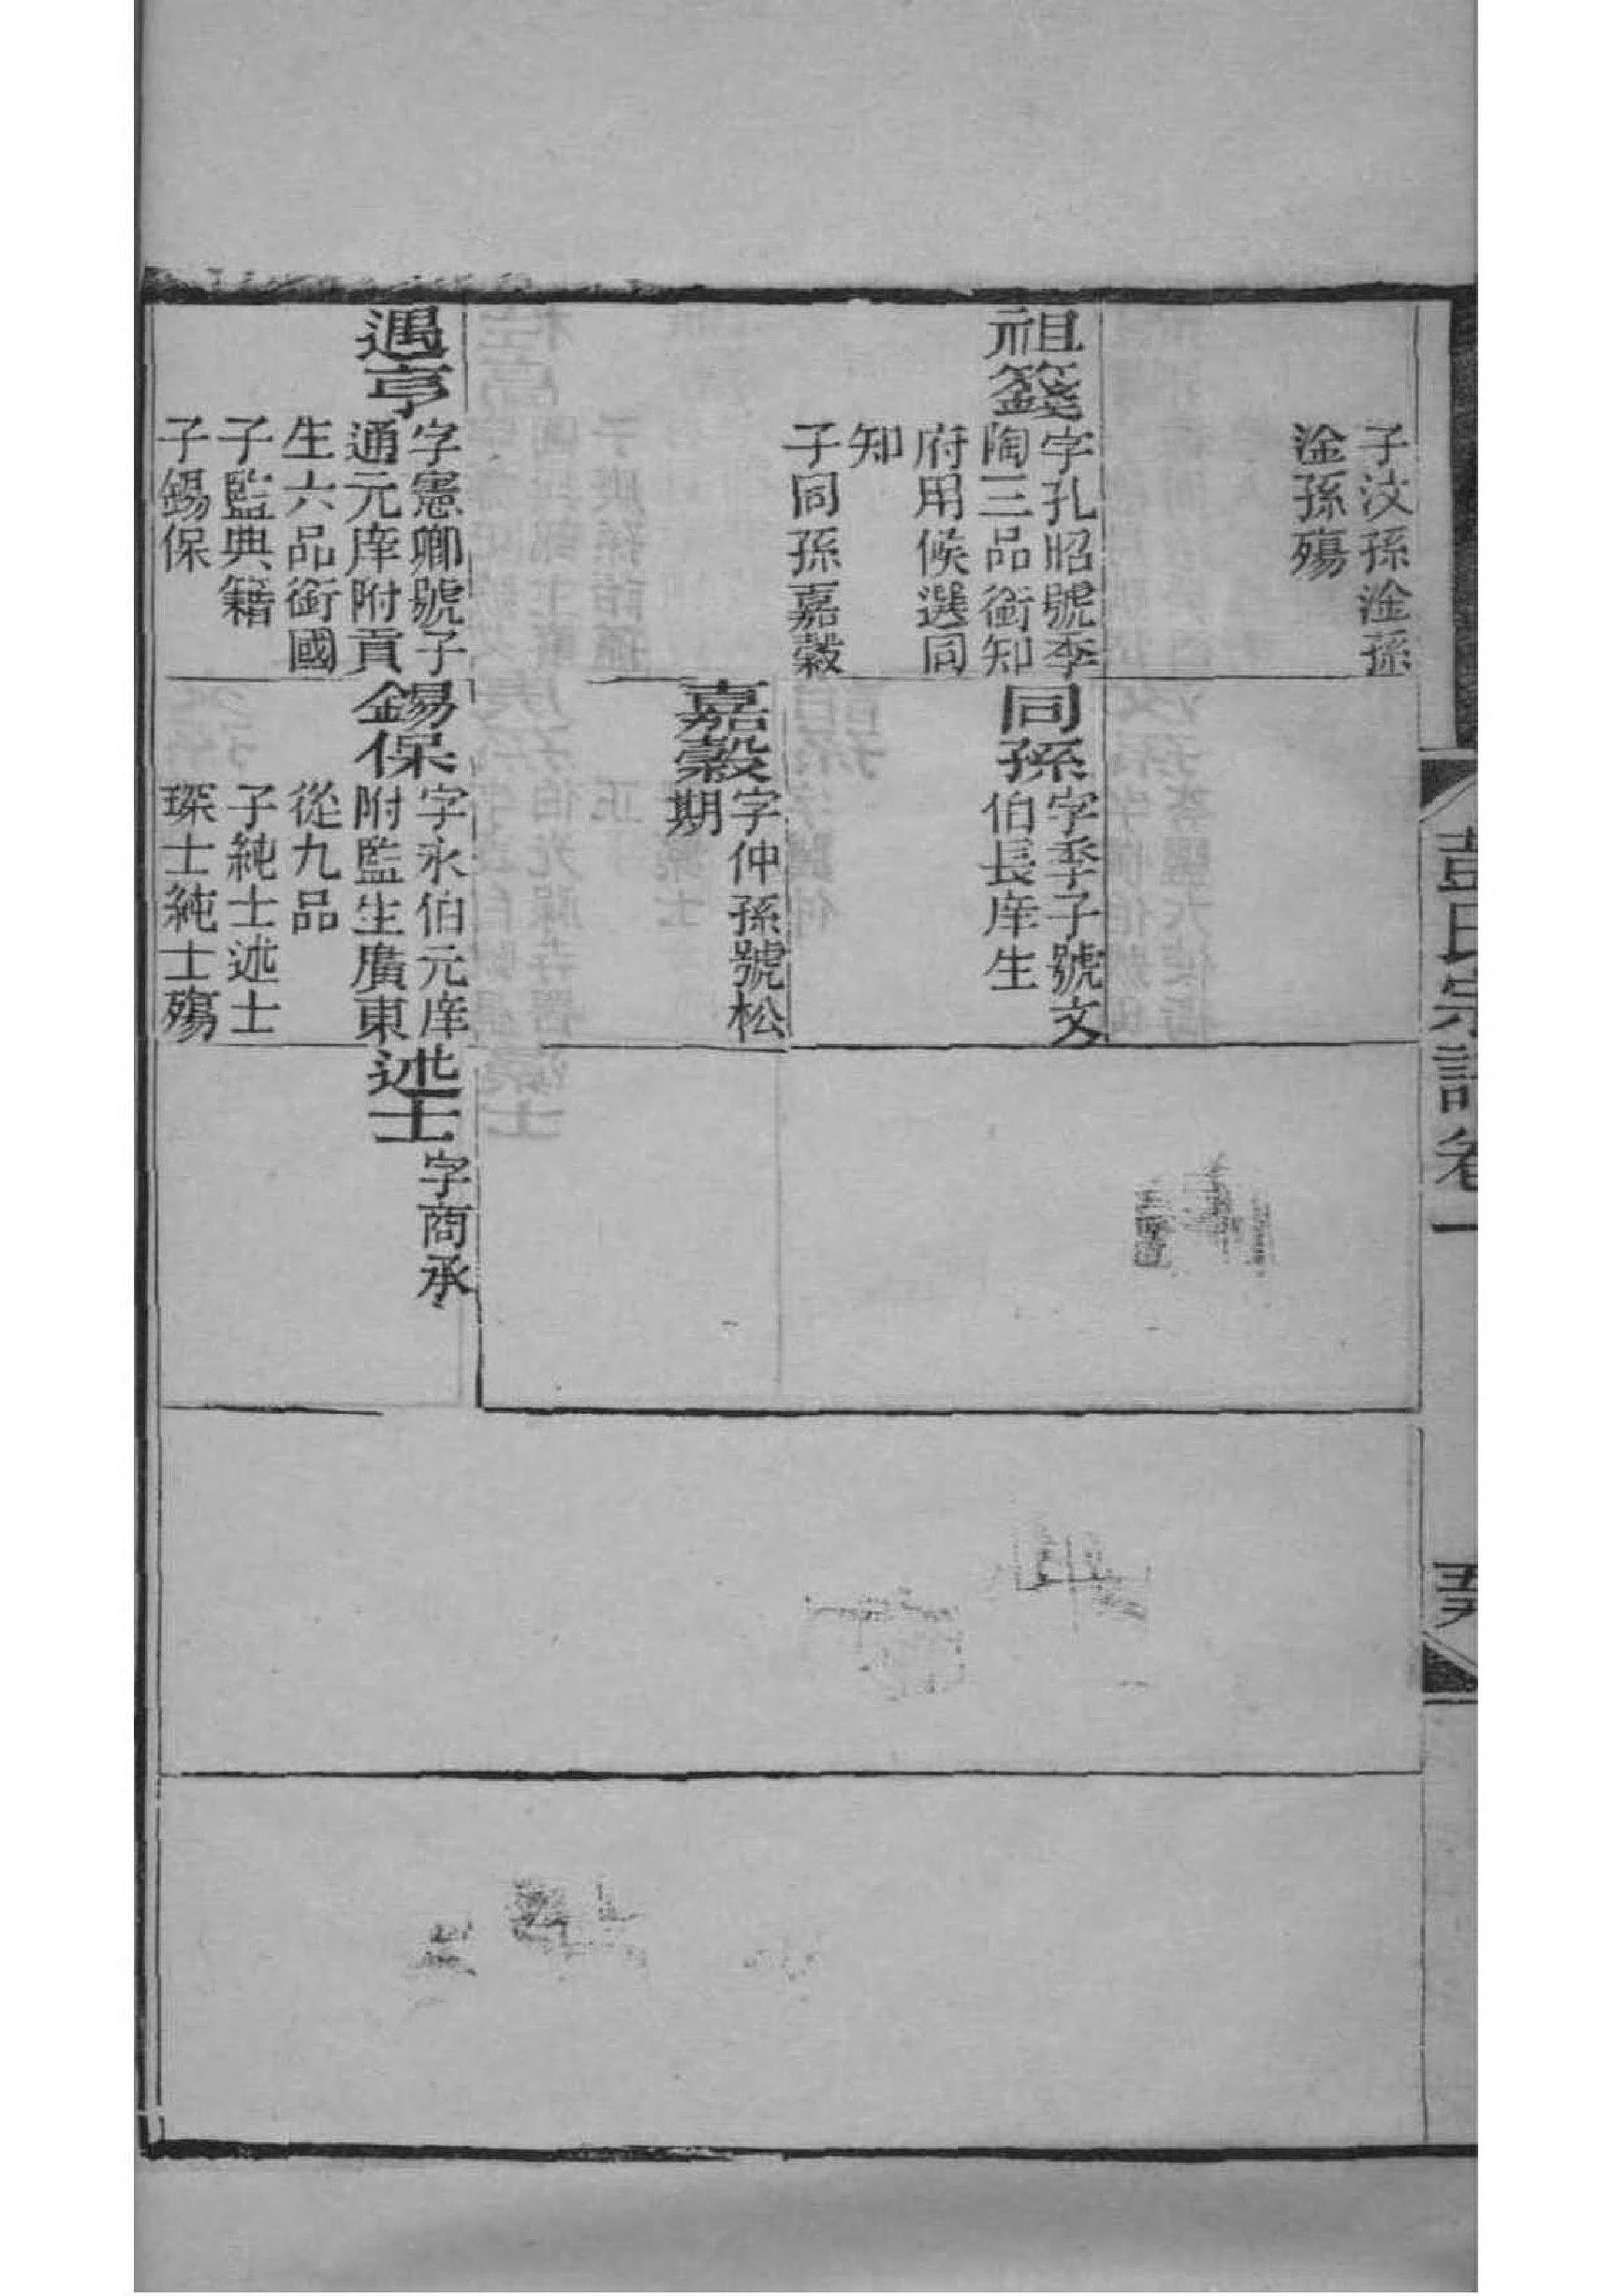 彭氏宗譜卷一
子汶孫淦孫
淦孫殤
祖籛
字孔昭號季
陶三品銜知
府用候選同
知
子同孫嘉穀
遇亨
字憲卿號子
通元庠附貢
生六品銜國
子監典籍
子錫保
同孫
字季子號文
伯長庠生
嘉穀
字仲孫號松
期
錫保
字永伯元庠
附監生廣東
從九品
子純士述士
琛士純士殤
述士
字商承